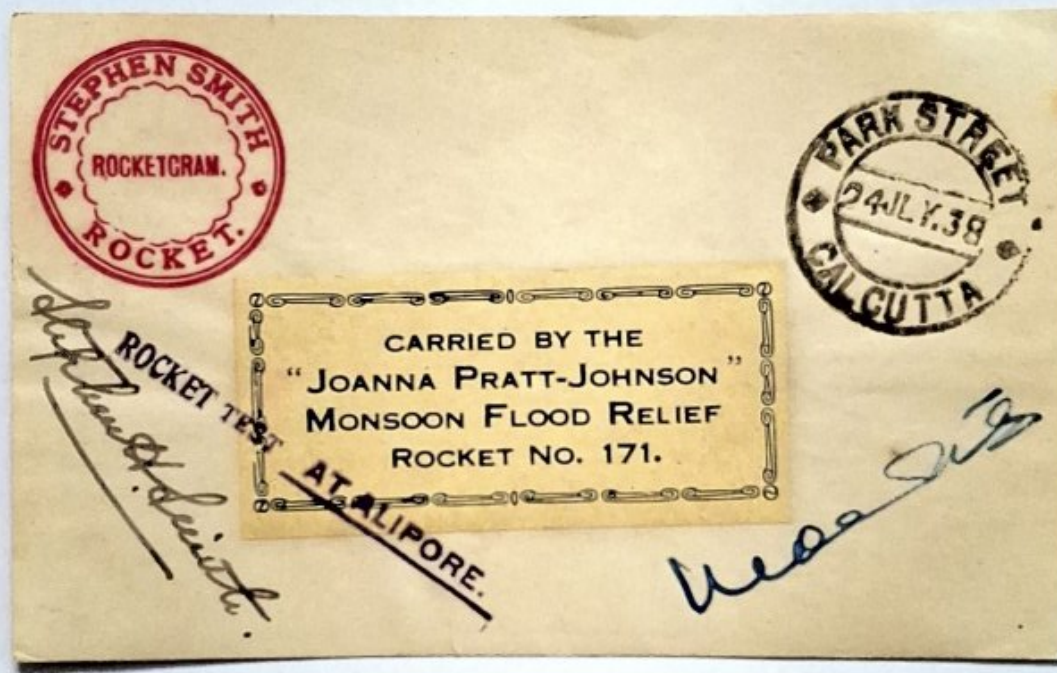 STEPHEN SMITH
ROCKETGRAM.
ROCKET.
PARK STREET
24JLY.38
CALCUTTA
CARRIED BY THE
"JOANNA PRATT-JOHNSON"
MONSOON FLOOD RELIEF
ROCKET No. 171.
ROCKET TEST
AT ALIPORE.
Stephen H. Smith.